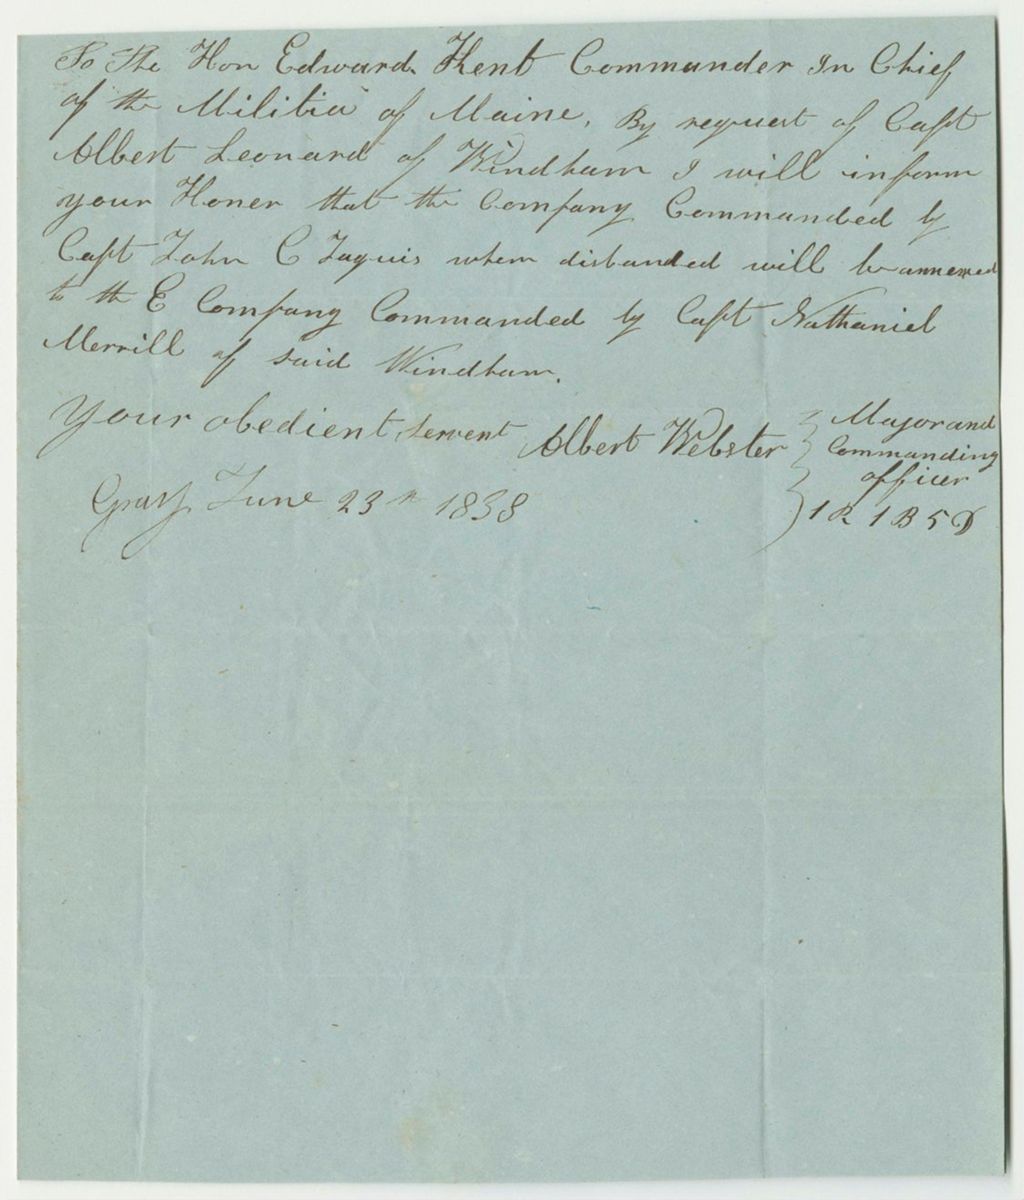 To The Hon Edward Kent Commander In Chief
of the Militia of Maine, By request of Capt
Albert Leonard of Windham I will inform
your Honer that the Company Commanded by
Capt John C Jaquis when disbanded will be annexed
to the E Company Commanded by Capt Nathaniel
Merrill of said Windham.
Your obedient Servent Albert Webster
Major and
Commanding
officer
1 R 1 B 5 D
Gray June 23rd 1838